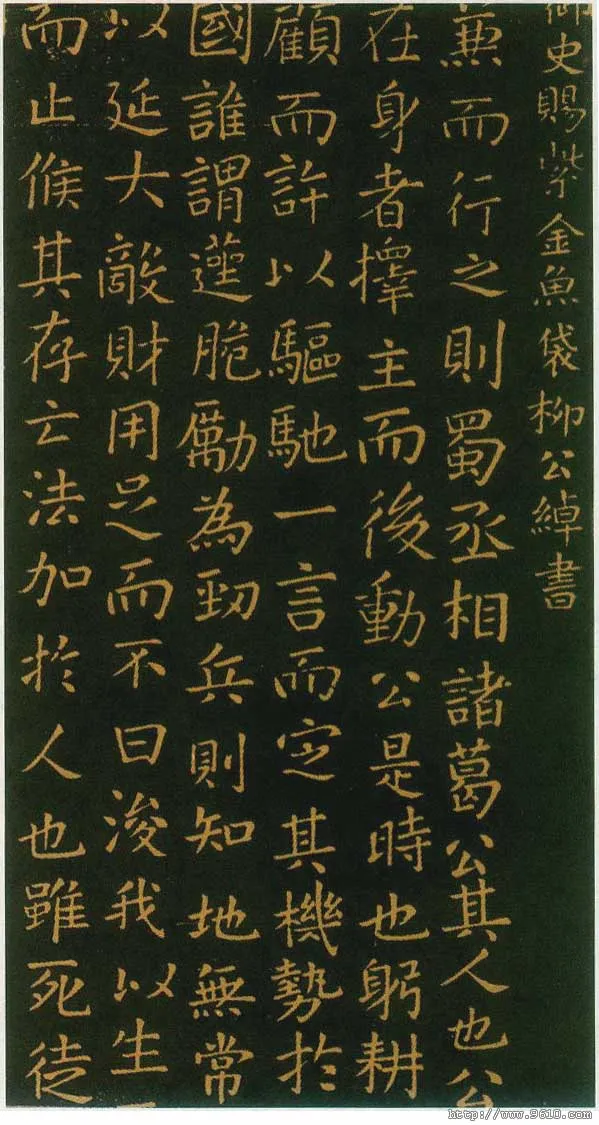 御史賜紫金魚袋柳公綽書
兼而行之則蜀丞相諸葛公其人也公
在身者擇主而後動公是時也躬耕
顧而許以驅馳一言而定其機勢於
國誰謂蘧脆勵為勁兵則知地無常
以延大敵財用足而不曰浚我以生
而止候其存亡法加於人也雖死徒
http://www.9610.com